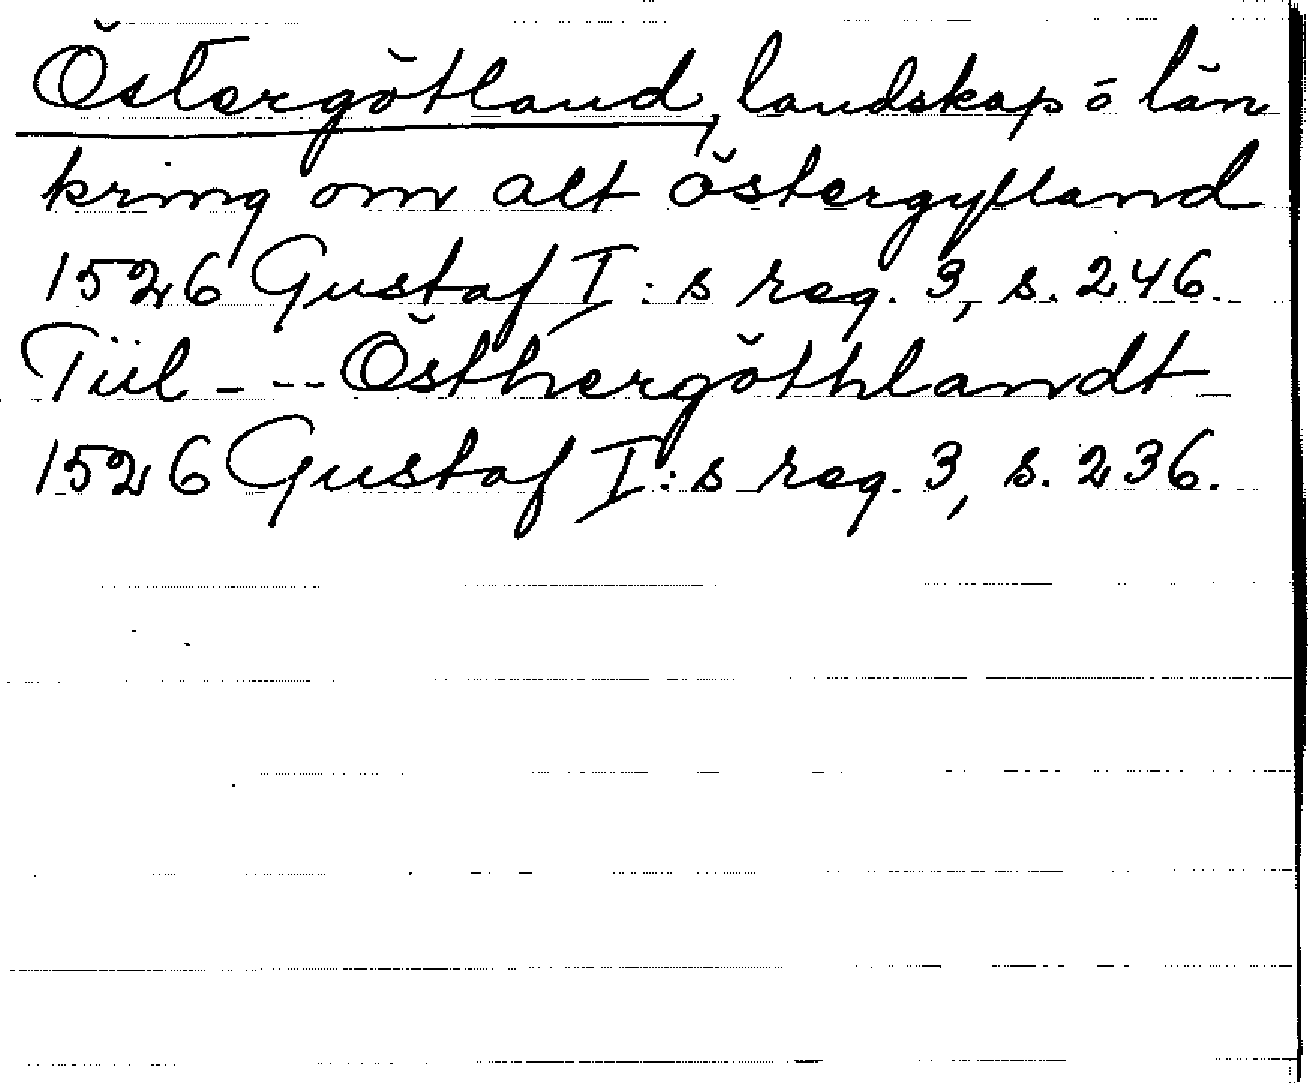 Östergötland, landskap o län
kring om alt östergylland
1526 Gustaf I:s reg. 3, s. 246.
Tiil --- Östhergöthlandt
1526 Gustaf I:s reg. 3, s. 236.